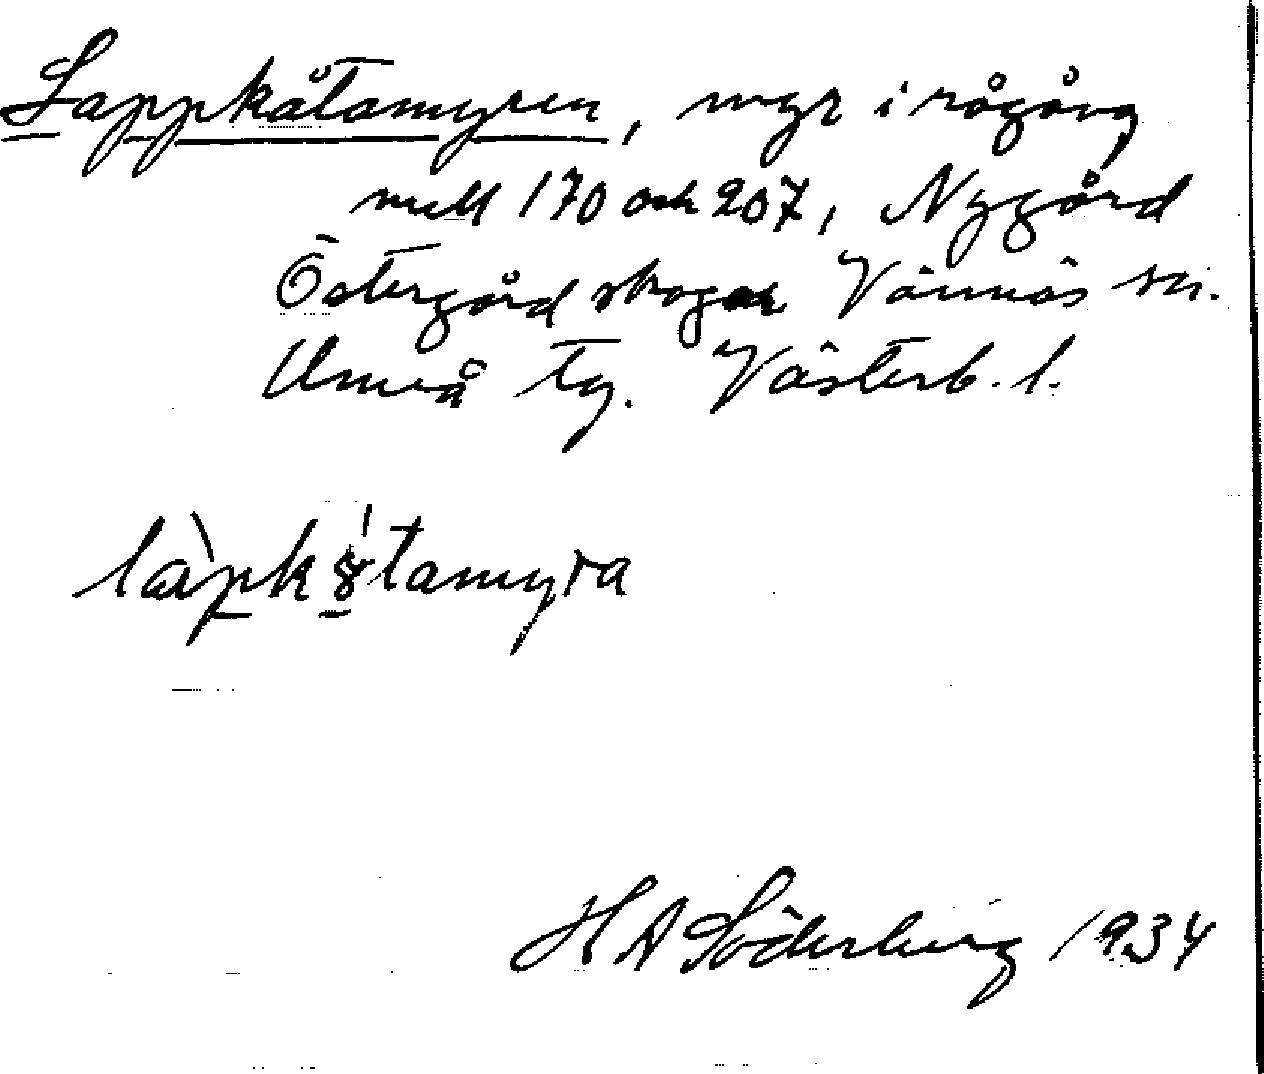 Lappkåtamyren, myr i rågång
mell 170 och 207, Nygård
Östergård skogar Vännäs sn.
Umeå tg. Västerb. l.
làpkȣ́tamyra
H A Söderberg 1934